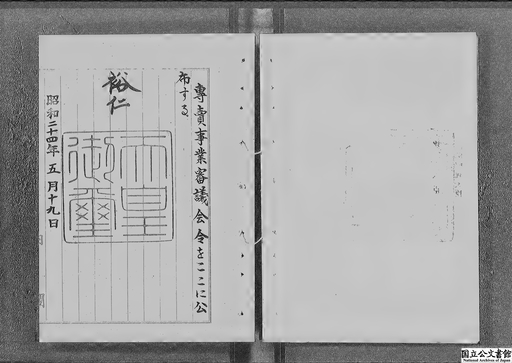 専賣事業審議会令をここに公
布する
裕仁
天皇
御璽
昭和二十四年五月十九日
国立公文書館
National Archives of Japan